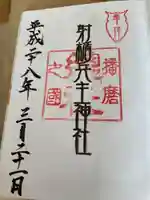 播磨
射楯兵主神社
之國
平成二十八年三月二十一日